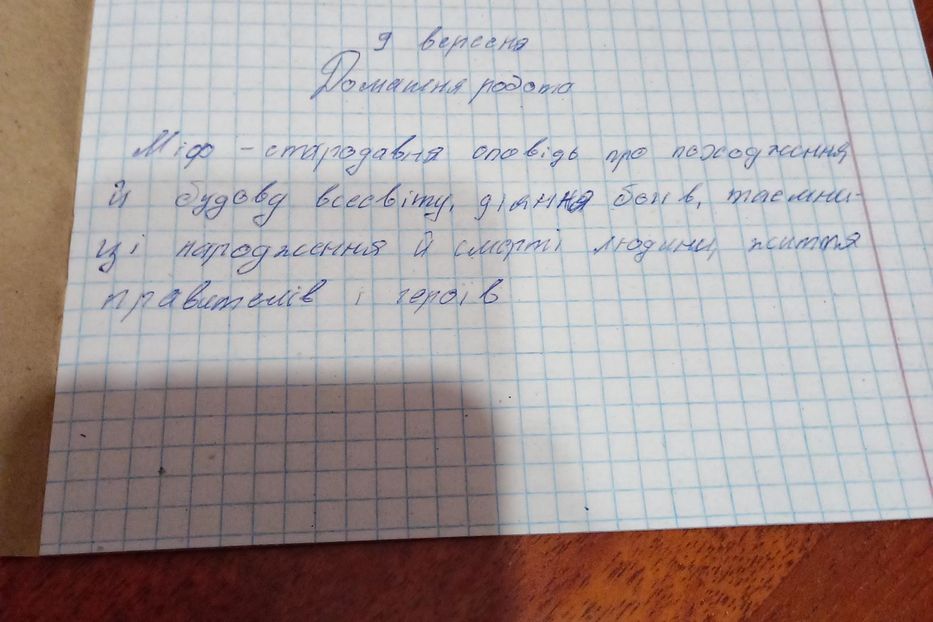 9 вересня
Домашня робота
Міф - стародавня оповідь про походження
й будову всесвіту, діяння богів, таємни-
ці народження й смерті людини, життя
правителів і героїв